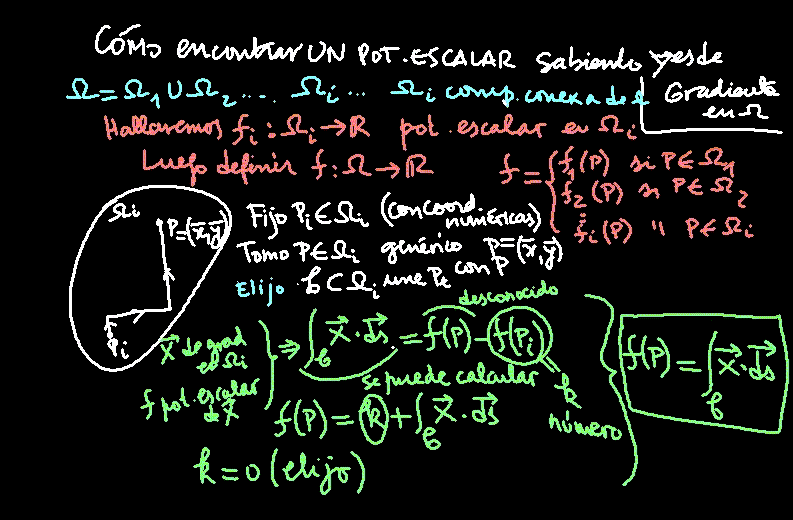 CÓMO encontrar UN POT. ESCALAR sabiendo X es de Gradiente en Ω
Ω = Ω₁ ∪ Ω₂ ... Ωᵢ ... Ωᵢ comp. conexa de Ω
Hallaremos fᵢ : Ωᵢ → ℝ pot. escalar en Ωᵢ
Luego definir f : Ω → ℝ f = { f₁(P) si P ∈ Ω₁
f₂(P) si P ∈ Ω₂
⋮
fᵢ(P) " P ∈ Ωᵢ
Ωᵢ
P = (x̄, ȳ)
Pᵢ
Fijo Pᵢ ∈ Ωᵢ (con coord. numéricas)
Tomo P ∈ Ωᵢ genérico P = (x̄, ȳ)
Elijo ℓ ⊂ Ωᵢ une Pᵢ con P
desconocido
X⃗ de grad en Ωᵢ
f pot. escalar de X⃗
⇒ ∫_ℓ X⃗ · d⃗s = f(P) − f(Pᵢ)
se puede calcular
k número
f(P) = k + ∫_ℓ X⃗ · d⃗s
k = 0 (elijo)
f(P) = ∫_ℓ X⃗ · d⃗s